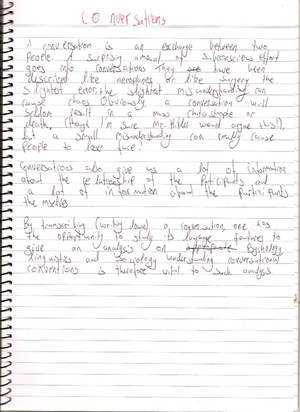 Conversations
A conversation is an exchange between two
people. A surprising amount of subconscious effort
goes into conversations They have been
described like aeroplanes or like surgery the
slightest error, the slightest misunderstanding can
cause chaos. Obviously a conversation will
seldom result in a mass catastrophe or
death, (though I'm sure Mr. Hitler would argue this!),
but a small misunderstanding can really cause
people to lose face!
Conversations also give us a lot of information
about the relationship of the participants and
a lot of information about the participants
themselves
By transcribing (writing down) a conversation, one has
the opportunity to study its language features to
give an analysis on psychology
linguistics and sociology understanding conversational
conventions is therefore vital to such analysis